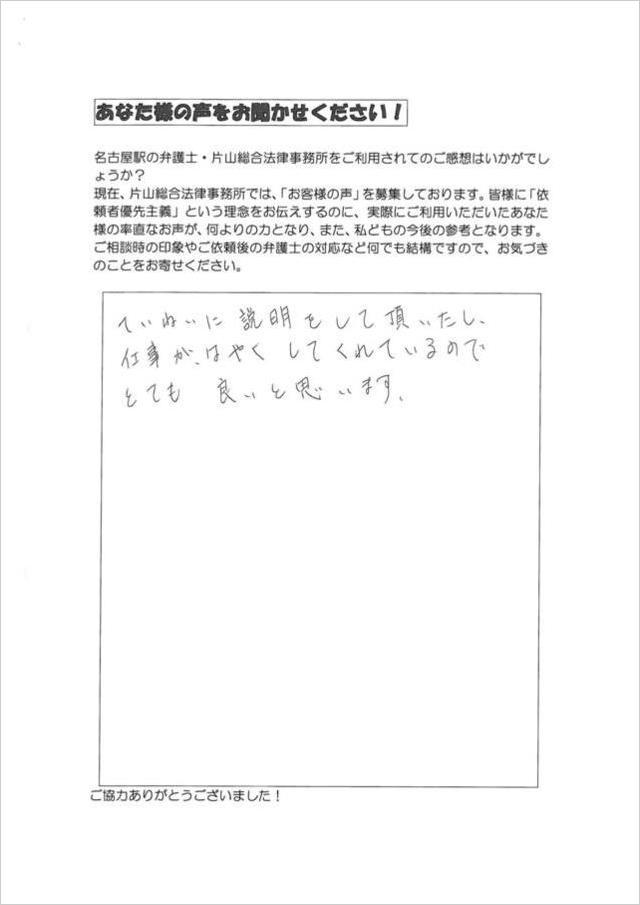 あなた様の声をお聞かせください！
名古屋駅の弁護士・片山総合法律事務所をご利用されてのご感想はいかがでし
ょうか？
現在、片山総合法律事務所では、「お客様の声」を募集しております。皆様に「依
頼者優先主義」という理念をお伝えするのに、実際にご利用いただいたあなた
様の率直なお声が、何よりの力となり、また、私どもの今後の参考となります。
ご相談時の印象やご依頼後の弁護士の対応など何でも結構ですので、お気づき
のことをお寄せください。
ていねいに 説明をして頂いたし、
仕事が、はやく してくれているので
とても 良いと思います、
ご協力ありがとうございました！